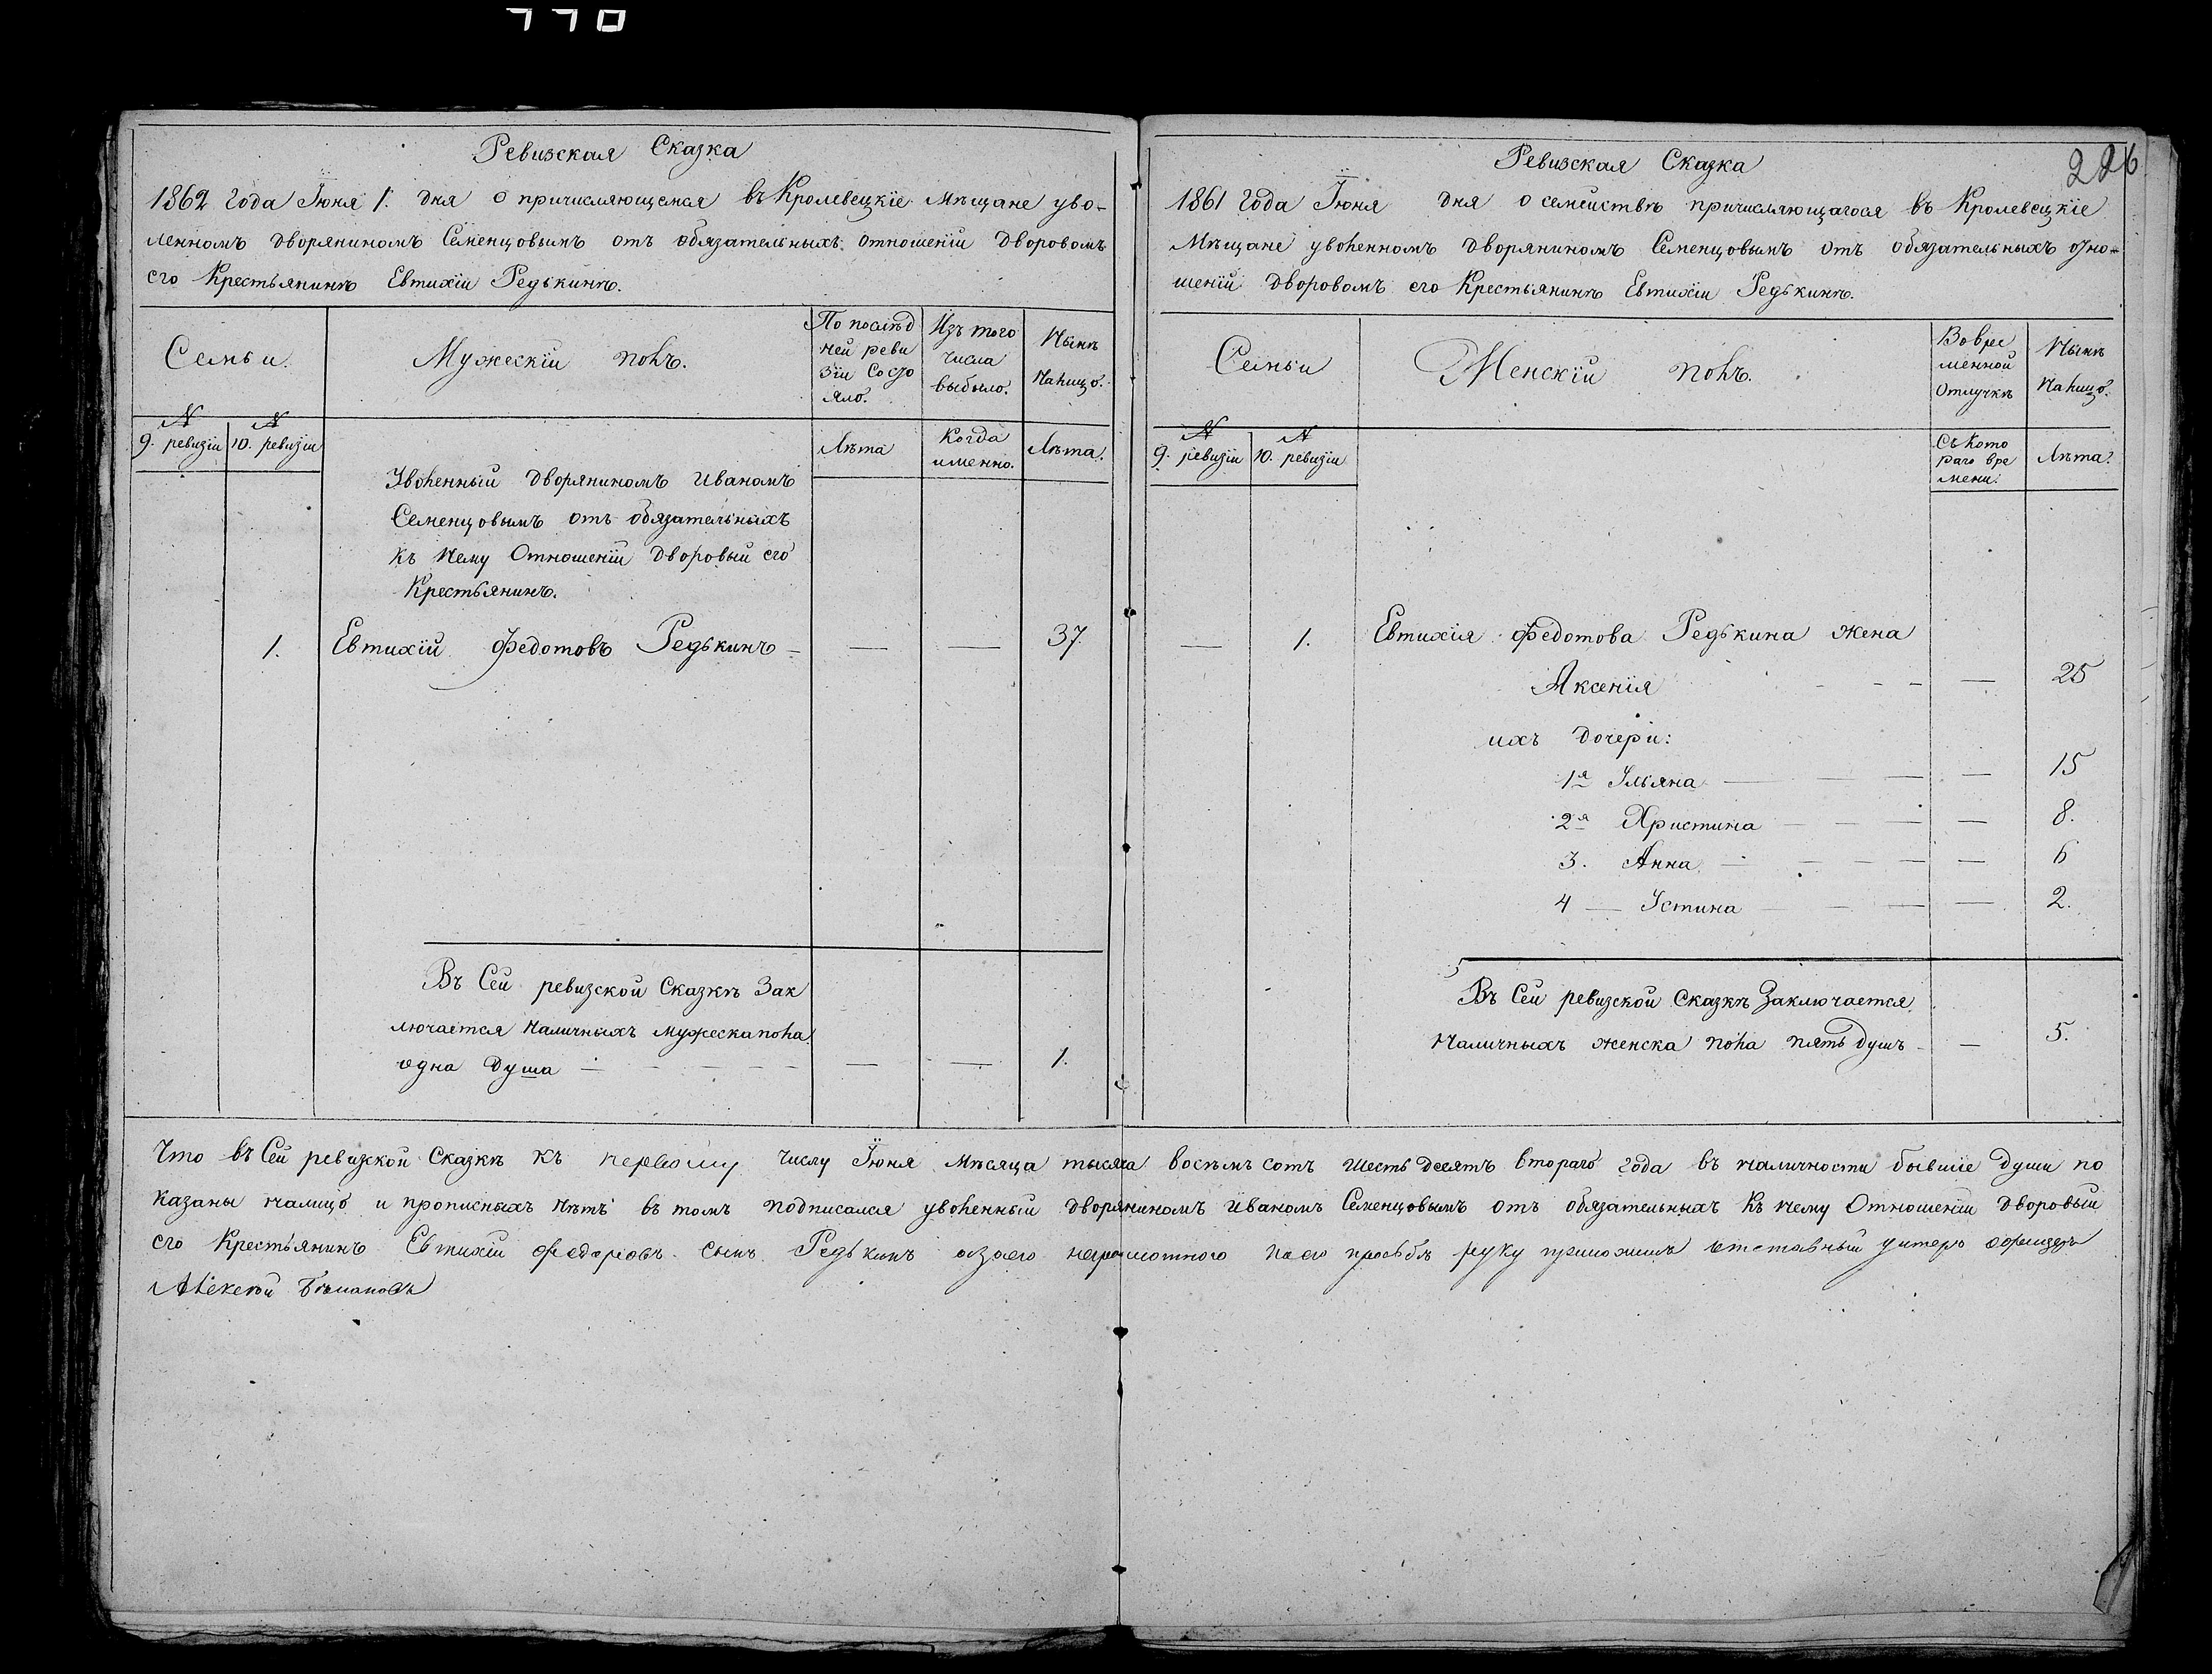 770
Ревизская Сказка
1862 года Іюня 1. дня о причисляющемся въ Кролевецкіе Мѣщане уво-
ленномъ дворяниномъ Семенцовымъ отъ обязательныхъ отношеніи дворовомъ
его Крестьянинѣ Евтихіи Редькинѣ.
Семьи.
Мужескій полъ.
По послѣд
ней реви
зіи Состо
яло.
Изъ того
числа
выбыло.
Нынѣ
Налицо.
№
9. ревизіи
№
10. ревизіи
Лѣта
Когда
именно.
Лѣта.
Уволенный дворяниномъ Иваномъ
Семенцовымъ отъ обязательныхъ
къ нему Отношеніи дворовый его
Крестьянинъ.
1. Евтихій Федотовъ Редькинъ — — — 37.
Въ Сей ревизской Сказкѣ Зак
лючается Наличныхъ мужеска пола
одна душа — — — 1.
226
Ревизская Сказка
1861 года Іюня дня о семействѣ причисляющагося въ Кролевецкіе
Мѣщане уволенномъ дворяниномъ Семенцовымъ отъ обязательныхъ отно-
шеній дворовомъ его Крестьянинѣ Евтихіи Редькинѣ.
Семьи
Женскій полъ.
Во вре
менной
Отлучкѣ
Нынѣ
Налицо.
№
9. ревизіи
№
10. ревизіи
Съ Кото
раго вре
мени.
Лѣта.
— 1. Евтихія Федотова Редькина жена
Аксенія — — 25
ихъ дочери:
1я Ульяна — — 15
2я Христина — — 8.
3. Анна — — 6
4 — Устина — — 2.
Въ Сей ревизской Сказкѣ Заключается
Наличныхъ женска пола пять душъ — — 5.
Что въ Сей ревизской Сказкѣ къ первому числу Іюня Мѣсяца тысяча восѣмъ сотъ шесть десятъ втораго года въ наличности бывшіе души по
казаны налицо и прописныхъ нѣтъ въ томъ подписался уволенный дворяниномъ Иваномъ Семенцовымъ отъ обязательныхъ къ нему Отношеніи дворовый
его Крестьянинъ Евтихіи федоровъ сынъ Редькинъ а за его неграмотного по его прозьбѣ руку приложилъ отставный унтеръ офицеръ
Алексѣй